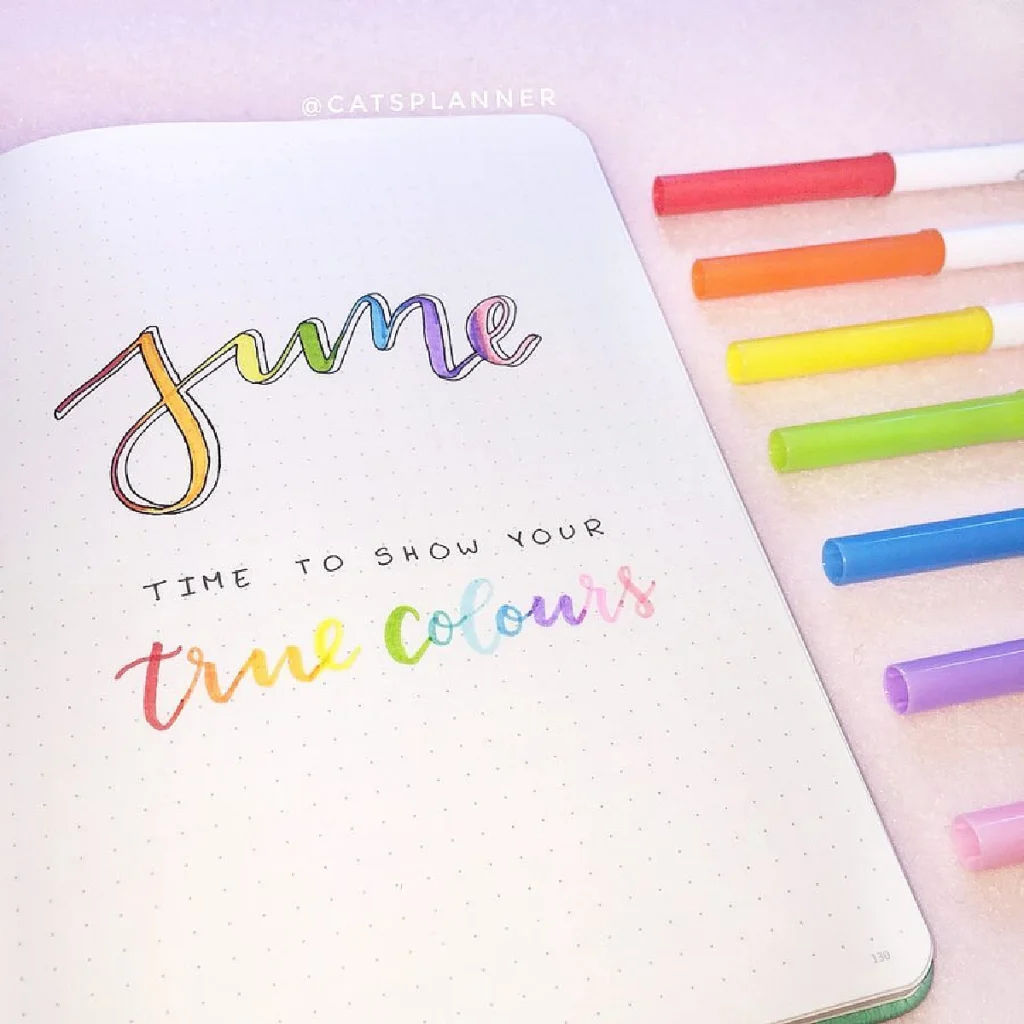 @CATSPLANNER
june
TIME TO SHOW YOUR
true colours
130